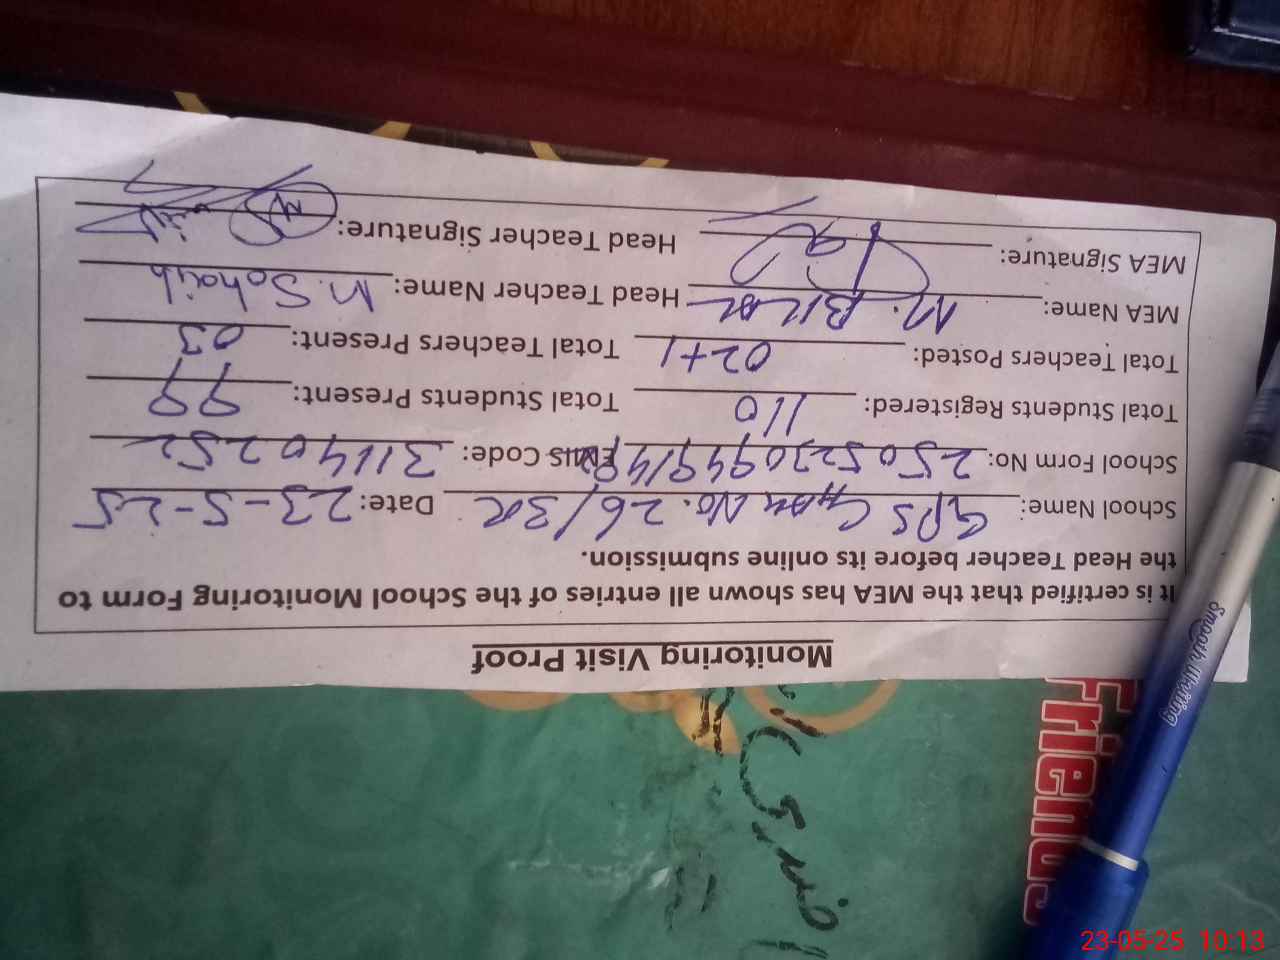 Monitoring Visit Proof
It is certified that the MEA has shown all entries of the School Monitoring Form to
the Head Teacher before its online submission.
School Name: GPS Chak No. 26/3R Date: 23-5-25
School Form No: EMIS Code: 31140252
Total Students Registered: 110 Total Students Present: 99
Total Teachers Posted: 02+1 Total Teachers Present: 03
MEA Name: M. Bilal Head Teacher Name: M. Sohaib
MEA Signature: Head Teacher Signature:
Smooth Writing
Friends
23-05-25 10:13